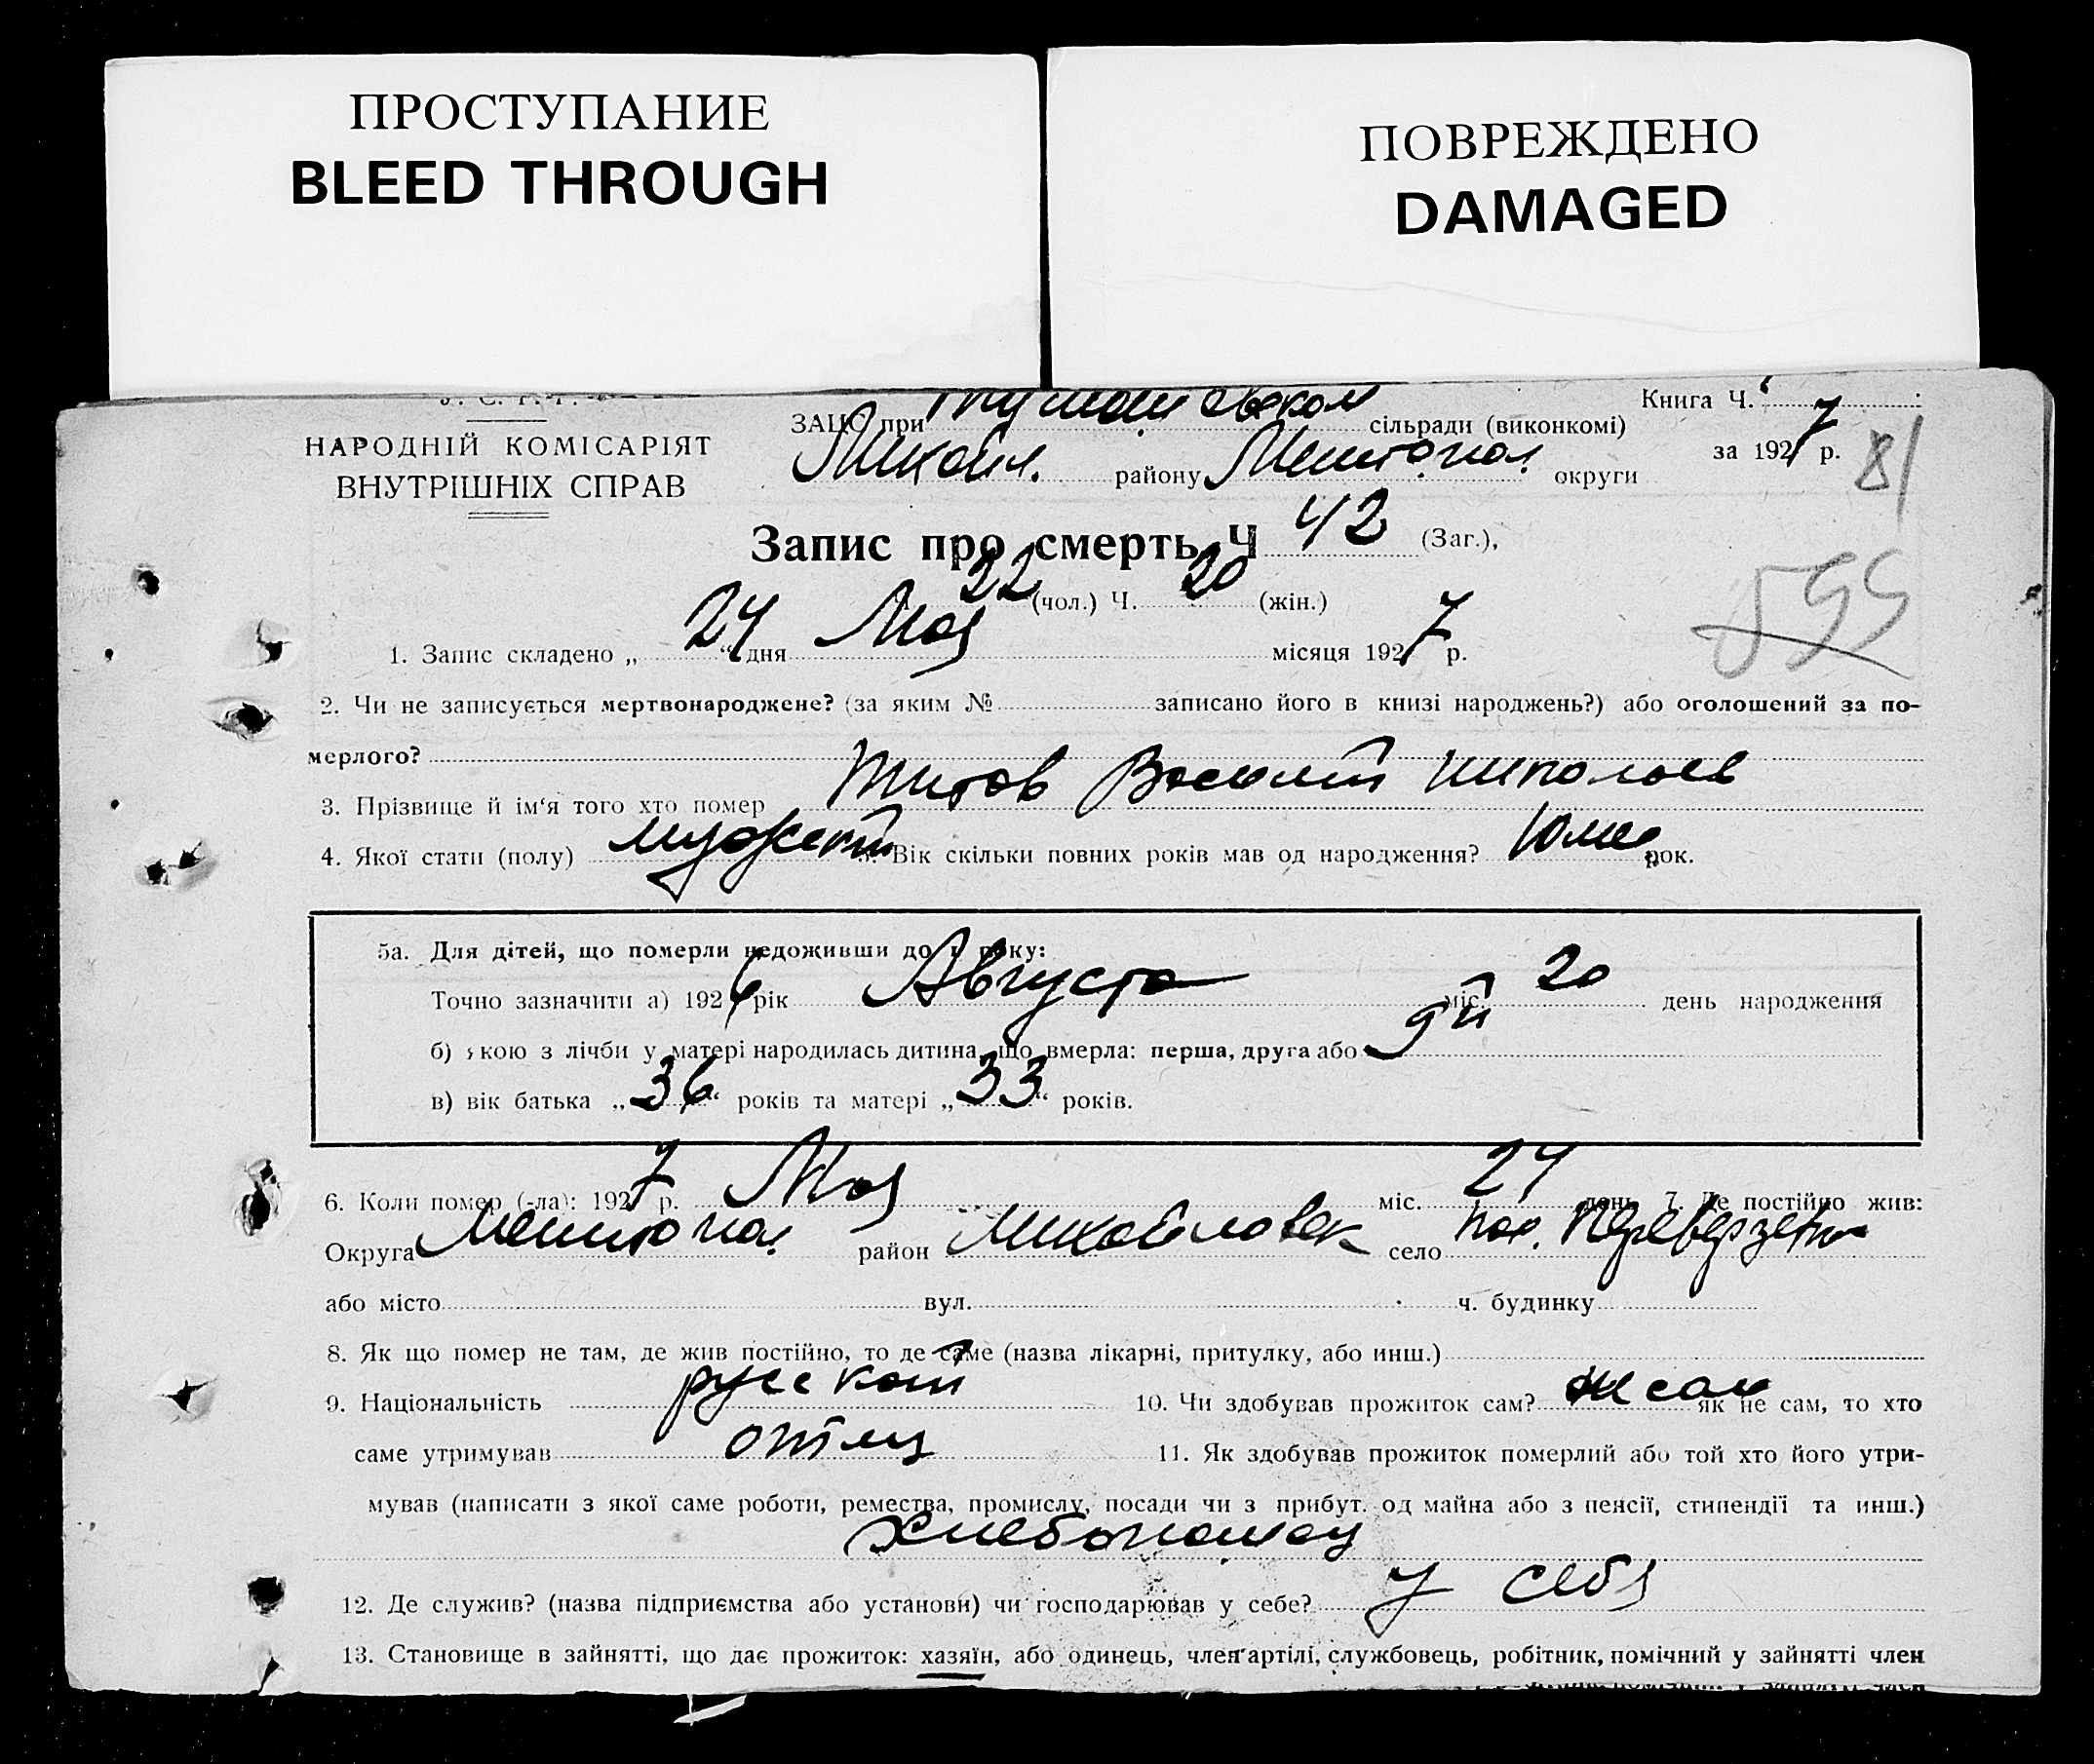 ПРОСТУПАНИЕ
BLEED THROUGH
ПОВРЕЖДЕНО
DAMAGED
Книга Ч.
НАРОДНІЙ КОМІСАРІЯТ
ВНУТРІШНІХ СПРАВ
ЗАЦС при сільради (виконкомі)
Михайл. району Мелитопол. округи
за 1927 р.
81
Запис про смерть Ч 42 (Заг.),
22 (чол.) Ч. 20 (жін.)
599
1. Запис складено „24“ дня Мая місяця 1927 р.
2. Чи не записується мертвонароджене? (за яким № записано його в книзі народжень?) або оголошений за по-
мерлого?
3. Прізвище й ім‘я того хто помер Титов Василий
4. Якої стати (полу) мужской Вік скільки повних років мав од народження? рок.
5а. Для дітей, що померли недоживши до 1 року:
Точно зазначити а) 1926 рік Августа міс. 20 день народження
б) якою з лічби у матері народилась дитина, що вмерла: перша, друга або 9й
в) вік батька „36“ років та матері „33“ років.
6. Коли помер (-ла): 1927 р. Мая міс. 24 день 7. Де постійно жив:
Округа Мелитопол. район Михайловск село
або місто вул. ч. будинку
8. Як що помер не там, де жив постійно, то де саме (назва лікарні, притулку, або инш.)
9. Національність русский 10. Чи здобував прожиток сам? не сам як не сам, то хто
саме утримував отец 11. Як здобував прожиток померлий або той хто його утри-
мував (написати з якої саме роботи, ремества, промислу, посади чи з прибут. од майна або з пенсії, стипендії та инш.)
хлебопашец
12. Де служив? (назва підприємства або установи) чи господарював у себе? у себя
13. Становище в зайнятті, що дає прожиток: хазяїн, або одинець, член артілі, службовець, робітник, помічний у зайнятті член